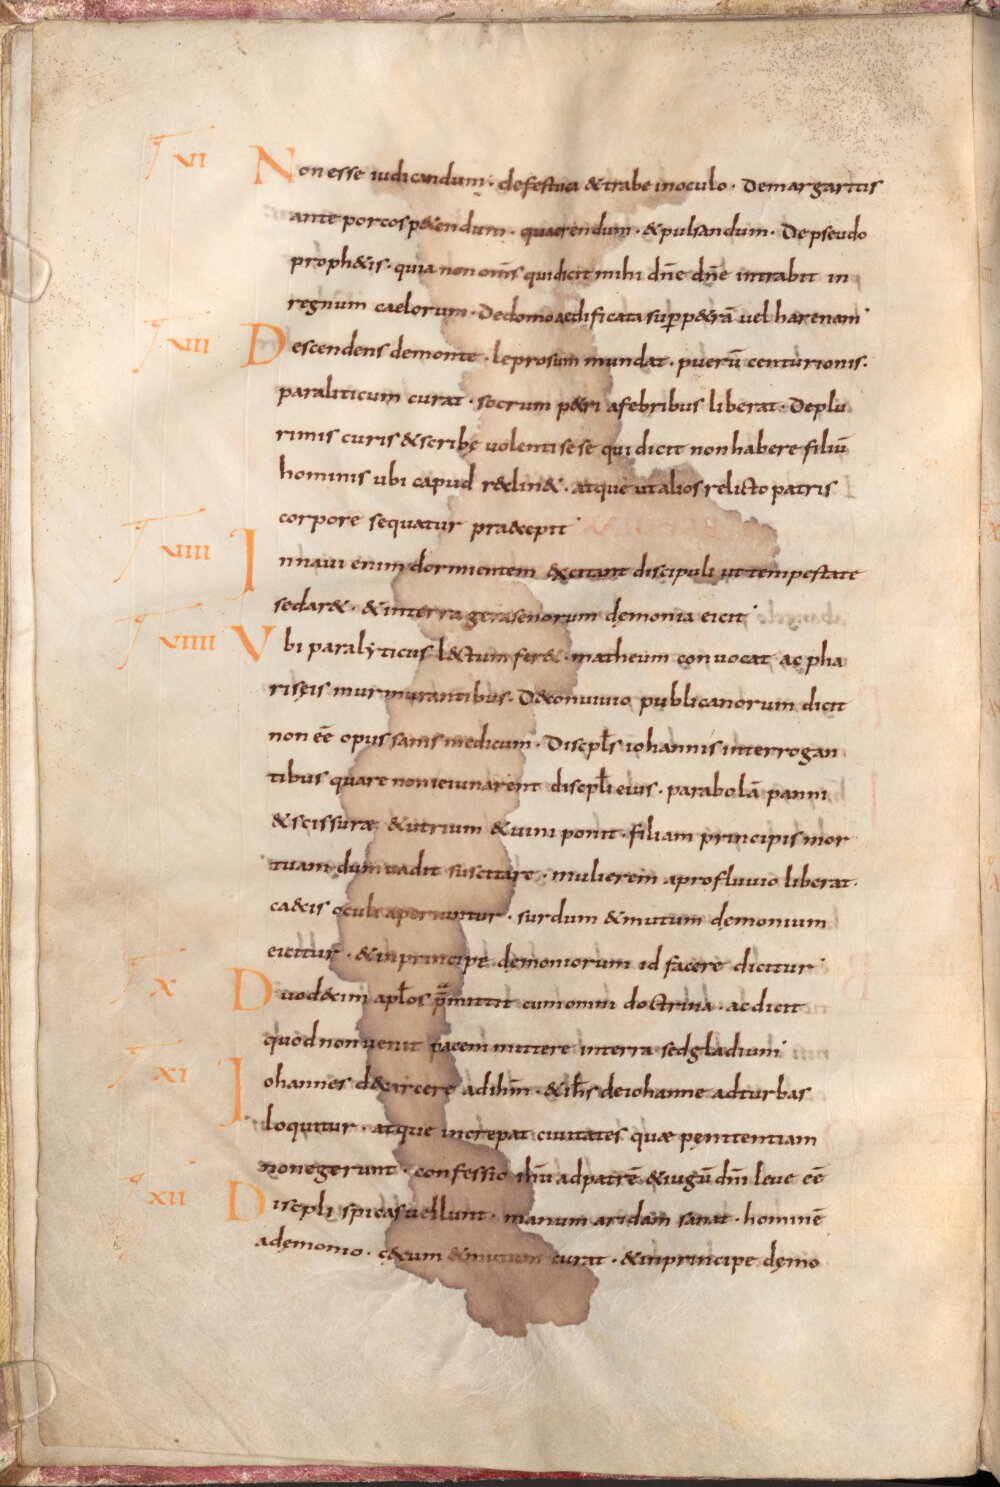 VI Non esse iudicandum · defestuca & trabe inoculo · Demargaritis
ante porcos p&endum · quaerendum · & pulsandum · Depseudo
proph&is · quia non om̅s quidicit mihi dn̅e dn̅e intrabit in
regnum caelorum · Dedomo aedificata sup p&rā vel harenam
VIII Descendens demonte · leprosum mundat · puerū centurionis ·
paraliticum curat · socrum p&ri afebribus liberat · Deplu
rimis curis & scribę volenti sese qui dicit non habere filiū
hominis ubi capud r&clin& · atque ut alios relicto patris
corpore sequatur pra&cepit
VIIII Innaui enim dormientem &citant discipuli ut tempestate
sedar& · & interra gerasenorum dęmonia eicit
VIIII Vbi paralyticus l&ctum fer& · matheum conuocat ac pha
riseis murmurantibus · D&conuiuio publicanorum dicit
non ēē opus sanis medicum · Discipl̅s iohannis interrogan
tibus quare non ieiunarent discipl̅i eius · parabolā panni
& scissuræ & utrium & uini ponit · filiam principis mor
tuam dum uadit suscitare · mulierem aprofluuio liberat ·
ca&cis oculi aperiuntur · surdum & mutum dęmonium
eicitur · & inprincipe dęmoniorum id facere dicitur
X Duod&cim apl̅os p̅mittit cum omni doctrina · ac dicit
quod non uenit pacem mittere interra sed gladium
XI Iohannes d&carcere ad ihm̅ · & ih̅s deiohanne adturbas
loquitur · atque increpat ciuitates quæ pęnitentiam
non egerunt · confessio ih̅u ad patrē & iugū dn̅i leue ēē
XII Discipli spicas uellunt · manum aridam sanat · hominē
adęmonio · c&cum & mutum curat · & inprincipe dęmo